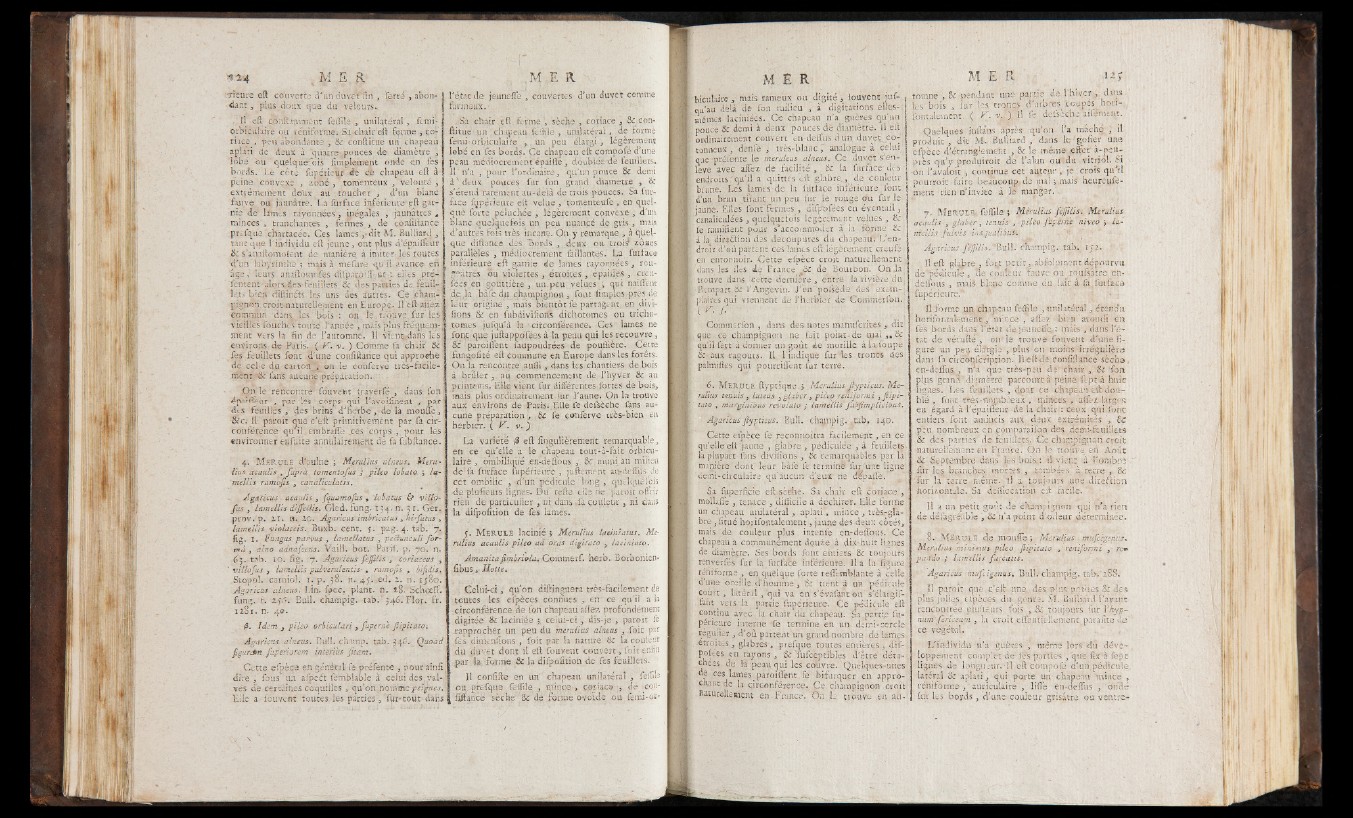 124 M E R
rieure est couverte d'un duvet fin , serré , abon-
dant , plus doux que du velours.
Il est constamment sessile , unilatéral , semi-
orbiculaire ou réniforme. Sa chair est ferme , co-
riace , peu abondante , & constitue un chapeau
aplati de deux à quatre pouces de diamètre ,
lobé ou quelquefois simplement ondé en ses
bords. Le côté supérieur de ce chapeau est à
peine convexe , zoné , tomenteux , velouté ,
extrêmement doux au toucher , d'un blanc
fauve ou jaunâtre. La surface inférieure est gar-
nie de lames rayonnées , inégales , jaunâtres ,
minces , tranchantes , fermes , de consistance
presque chartacée. Ces lames , dit M. Bulliard ,
tant que l'individu est jeune , ont plus d'épaisseur
& s'anastomosent de manière à imiter les routes
d'un labyrinthe ; mais à mesure qu'il avance en
âge , leurs anastomoses disparoissent ; elles pré-
sentent alors des feuillets & des parties de feuil-
lets bien distincts les uns des autres. Ce cham-
pignon croît naturellement en France. Il est assez
commun dans les bois : on le trouve sur les
vieilles souches toute l'année , mais plus fréquem-
ment vers la fin de l'automne. Il vient dans les
environs de Paris. ( V. v. ) Comme sa chair &
ses feuillets sont d'une consistance qui approche
de celle du carton , on le conserve très-facile-
ment & sans aucune préparation.
On le rencontre souvent traversé , dans son
épaisseur , par les corps qui l'avoisinent , par
des feuilles , des brins d'herbe , de la mousse ,
&c. Il paroît que c'est primitivement par sa cir-
conférence qu'il embrasse ces corps , pour les
environner ensuite annulairement de sa substance.
4. MERULE d'aulne ; Merulius alneus. Meru-
lius acaulis , supra tomentosus ; pileo lobato ; la-
mellis ramosis , canaliculatis.
Agaricus acaulis , squamosus , lobatus & villo-
sus , lamellis difficilis. Gled. fung. 134. n. 31. Ger.
prov. p. 21. n. 20. Agaricus imbricatus , hirsutus ,
lamellis violaceis. Buxb. cent. 5. pag. 4. tab. 7.
fig. 1. Fungus parvus , lamellatus , pectunculi for-
mâ , alno adnascens. Vaill. bot. Paris. p. 70. n.
63. tab. 10. fig. 7. Agaricus sessilis , coriaceus ,
villosus , lamellis pulverulentis , ramosis , bifidis.
Scopol. carniol. 1. p. 38. n. 45. ed. 2. n. 1580.
Agaricus alneus. Lin. spec. plant. n. 18. Schœff.
fung. t. 246. Bull. champig. tab. 346. Flor. fr.
1281. n. 40.
β. Idem , pileo orbiculari , supernè stipitato.
Agaricus alneus. Bull. champ. tab. 346. Quoad
figuram superiorem interius sitam.
Cette espèce en général se présente , pour ainsi
dire , sous un aspect semblable à celui des val-
ves de certaines coquilles , qu'on nomme peignes.
Elle a souvent toutes les parties , sur-tout dans
M E R
l'état de jeunesse , couvertes d'un duvet comme
farineux.
Sa chair est ferme , sèche , coriace , & con-
stitue un chapeau sessile , unilatéral , de forme
semi-orbiculaire , un peu élargi , légèrement
lobé en ses bords. Ce chapeau est composé d'une
peau médiocrement épaisse , doublée de feuillets.
Il n'a , pour l'ordinaire , qu'un pouce & demi
à deux pouces sur son grand diamètre , &
s'étend rarement au-delà de trois pouces. Sa sur-
face supérieure est velue , tomenteuse , en quel-
que sorte peluchée , légèrement convexe , d'un
blanc quelquefois un peu nuancé de gris , mais
d'autres fois très incane. On y remarque , à quel-
que distance des bords , deux ou trois zônes
parallèles , médiocrement saillantes. La surface
inférieure est garnie de lames rayonnées , rou-
geâtres ou violettes , étroites , épaisses , creu-
sées en gouttière , un peu velues , qui naissent
de la base du champignon , sont simples près de
leur origine , mais bientôt se partagent en divi-
sions & en subdivisions dichotomes ou tricho-
tomes jusqu'à la circonférence. Ces lames ne
sont que juxtapposées à la peau qui les recouvre ,
& paroissent saupoudrées de poussière. Cette
fungosité est commune en Europe dans les forêts.
On la rencontre aussi , dans les chantiers de bois
à brûler , au commencement de l'hyver & au
printems. Elle vient sur différentes sortes de bois,
mais plus ordinairement sur l'aune. On la trouve
aux environs de Paris. Elle se dessèche sans au-
cune préparation , & se conserve très-bien en
herbier. ( V. v. )
La variété β est singulièrement remarquable ,
en ce qu'elle a le chapeau tout-à-fait orbicu-
laire , ombiliqué en-dessous , & muni au milieu
de sa surface supérieure , justement au-dessus de
cet ombilic , d'un pédicule long , quelquefois
de plusieurs lignes. Du reste elle ne paroît offrir
rien de particulier , ni dans sa couleur , ni dans
la disposition de ses lames.
5. MERULE lacinié ; Merulius laciniatus. Me-
rulius acaulis pileo ad oras digitato , laciniato.
Amanita fimbriola. Commers. herb. Borbonien-
sibus , Hotte.
Celui-ci , qu'on distinguera très-facilement de
toutes les espèces connues , en ce qu'il a la
circonférence de son chapeau assez profondément
digitée & laciniée ; celui-ci , dis-je , paroît se
rapprocher un peu du merulius alneus , soit par
ses dimensions , soit par la nature & la couleur
du duvet dont il est souvent couvert , soit enfin
par la forme & la disposition de ses feuillets.
Il consiste en un chapeau unilatéral , sessile
ou presque sessile , mince , coriace , de con-
sistance sèche & de forme ovoïde ou semi-or-
M E R
biculaire , mais rameux ou digité , souvent jus-
qu'au delà de son milieu , à digitations elles-
mêmes laciniées. Ce chapeau n'a guères qu'un
pouce & demi à deux pouces de diamètre. Il est
ordinairement couvert en-dessus d'un duvet co-
tonneux , dense , très-blanc , analogue à celui
que présente le merulius alneus. Ce duvet s'en-
lève avec assez de facilité , & la surface des
endroits qu'il a quittés est glabre , de couleur
brune. Les lames de la surface inférieure sont
d'un brun tirant un peu sur le rouge ou sur le
jaune. Elles sont fermes , disposées en éventail ,
canaliculées , quelquefois légèrement velues , &
se ramifient pour s'accommoder à la forme &
à la direction des découpures du chapeau. L'en-
droit d'où partent ces lames est légèrement creusé
en entonnoir. Cette espèce croît naturellement
dans les îles de France & de Bourbon. On la
trouve dans cette dernière , entre la rivière du
Rempart & l'Angevin. J'en possède des exem-
plaires qui viennent de l'herbier de Commerson.
( V. s. )
Commerson , dans des notes manuscrites , dit
que ce champignon ne fait point de mal , &
qu'il sert à donner un goût de morille à la soupe
& aux ragouts. Il l'indique sur les troncs des
palmistes qui pourrissent sur terre.
6. MERULE styptique ; Merulius stypticus. Me-
rulius tenuis , luteus , glaber , pileo reniformi , stipi-
tato , marginibus revoluto ; lamellis subsimplicibus.
Agaricus stypticus. Bull. champig. tab. 140.
Cette espèce se reconnoîtra facilement , en ce
qu'elle est jaune , glabre , pédiculée , à feuillets
la plupart sans divisions , & remarquables par la
manière dont leur base se termine sur une ligne
demi-circulaire qu'aucun d'eux ne dépasse.
Sa superficie est sèche. Sa chair est coriace ,
mollasse , tenace , difficile à déchirer. Elle forme
un chapeau unilatéral , aplati , mince , très-gla-
bre , situé horisontalement , jaune des deux côtés,
mais de couleur plus intense en-dessous. Ce
chapeau a communément douze à dix-huit lignes
de diamètre. Ses bords sont entiers & toujours
renversés sur la surface inférieure. Il a la figure
réniforme , en quelque sorte ressemblante à celle
d'une oreille d'homme , & tient à un pédicule
court , latéral , qui va en s'évasant ou s'élargis-
sant vers la partie supérieure. Ce pédicule est
continu avec la chair du chapeau. Sa partie su-
périeure interne se termine en un demi-cercle
régulier , d'où partent un grand nombre de lames
étroites , glabres , presque toutes entières , dis-
posées en rayons , & susceptibles d'être déta-
chées de la peau qui les couvre. Quelques-unes
de ces lames paroissent se bifurquer en appro-
chant de la circonférence. Ce champignon croît
naturellement en France. On le trouve en au-
M E R 125
tomne , & pendant une partie de l'hiver , dans
les bois , sur les troncs d'arbres coupés hori-
sontalement. ( V. v. ) Il se dessèche aisément.
Quelques instans après qu'on l'a mâché , il
produit , dit M. Bulliard , dans le gosier une
espèce d'étranglement , & le même effet à-peu-
près qu'y produiroit de l'alun ou du vitriol. Si
on l'avaloit , continue cet auteur , je crois qu'il
pourroit faire beaucoup de mal ; mais heureuse-
ment rien n'invite à le manger.
7. MERULE sessile ; Merulius sessilis. Merulius
acaulis , glaber , tenuis , pileo supernè niveo ; la-
mellis fulvis inaequalibus.
Agaricus sessilis. Bull. champig. tab. 152.
Il est glabre , fort petit , absolument dépourvu
de pédicule , de couleur fauve ou roussâtre en-
dessous , mais blanc comme du lait à sa surface
supérieure.
Il forme un chapeau sessile , unilatéral , étendu
horisontalement , mince , assez bien arrondi en
ses bords dans l'état de jeunesse ; mais , dans l'é-
tat de vétusté , on le trouve souvent d'une fi-
gure un peu élargie , plus ou moins irrégulière
dans sa circonscription. Il est de consistance sèche
en-dessus , n'a que très-peu de chair , & son
plus grand diamètre parcourt à peine sept à huit
lignes. Les feuillets , dont ce chapeau est dou-
blé , sont très-nombreux , minces , assez larges
eu égard à l'épaisseur de la chair : ceux qui sont
entiers sont amincis aux deux extrémités , &
peu nombreux en comparaison des demi-feuillets
& des parties de feuillets. Ce champignon croît
naturellement en France. On le trouve en Août
& Septembre dans les bois : il vient à l'ombre
sur les branches mortes , tombées à terre , &
sur la terre même. Il a toujours une direction
horizontale. Sa dessiccation est facile.
Il a un petit goût de champignon qui n'a rien
de désagréable , & n'a point d'odeur déterminée.
8. MERULE de mousse ; Merulius muscigenus.
Merulius minimus pileo stipitato , reniformi , re-
pando ; lamellis furcatis.
Agaricus muscigenus. Bull. champig. tab. 288.
Il paroît que c'est une des plus petites & des
plus jolies espèces du genre. M. Bulliard l'ayant
rencontrée plusieurs fois , & toujours sur l'hyp-
num sericeum , la croit essentiellement parasite de
ce végétal.
L'individu n'a guères , même lors du déve-
loppement complet de ses parties , que six à sept
lignes de longueur. Il est composé d'un pédicule
latéral & aplati , qui porte un chapeau mince ,
réniforme , auriculaire , lisse en-dessus , ondé
sur les bords , d'une couleur grisâtre ou ventre-